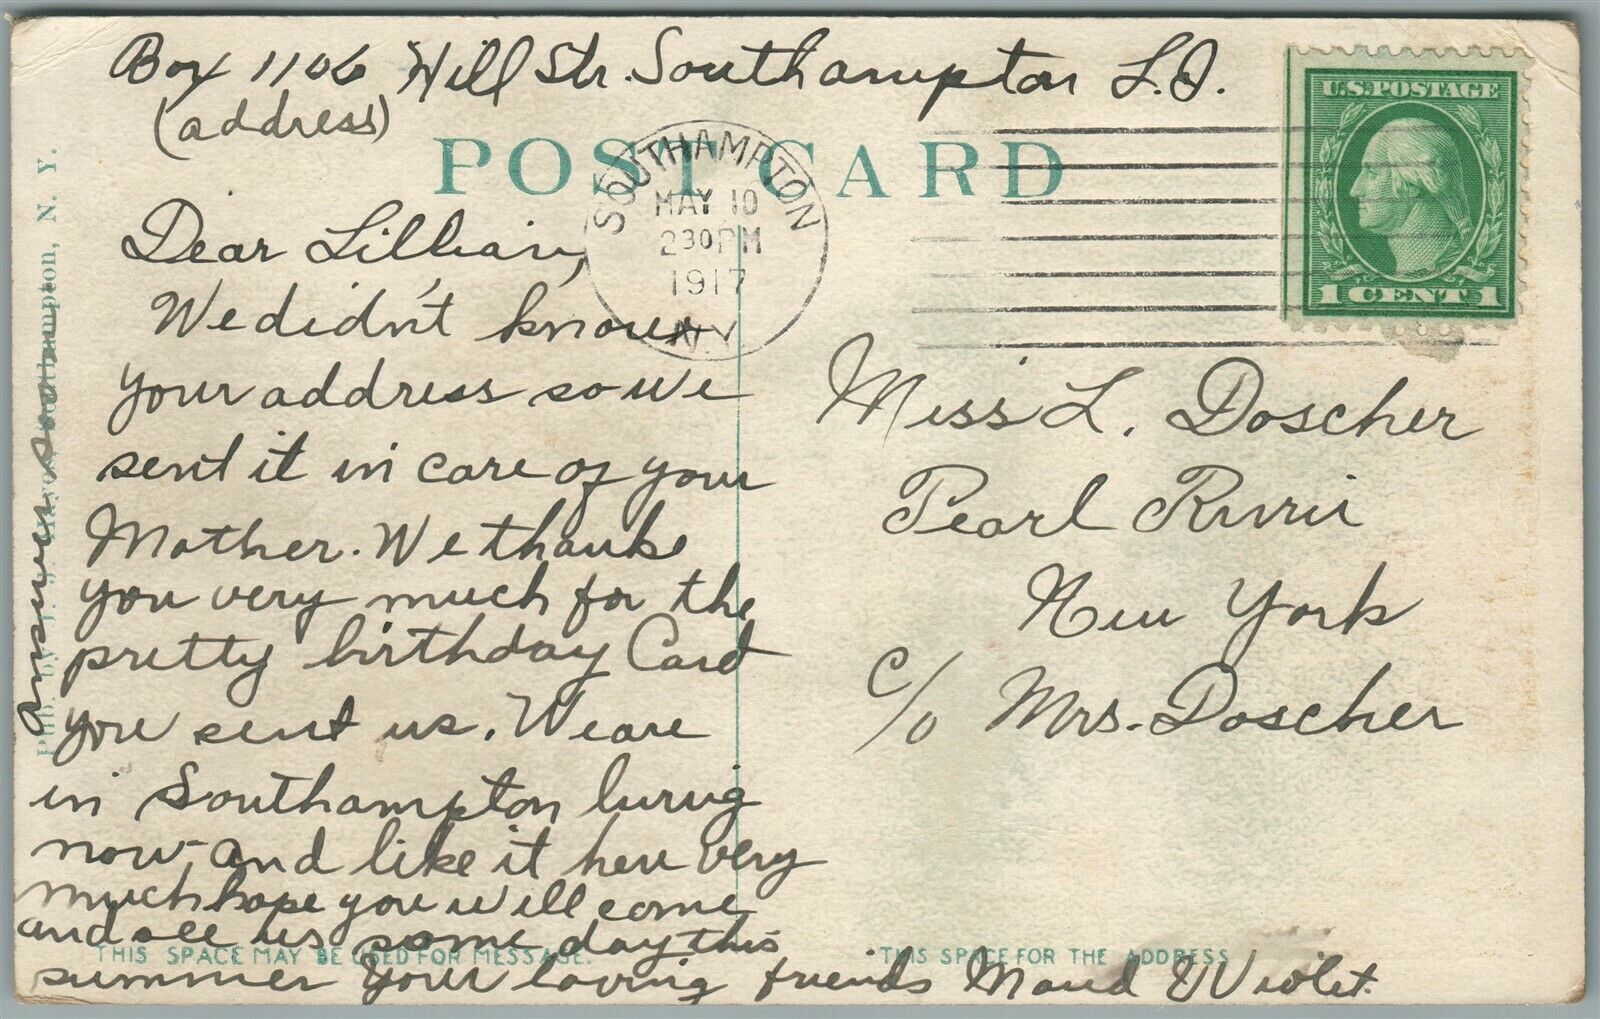 Box 1106 Hill Str. Southampton L.I.
(address)
POST CARD
U.S. POSTAGE
1 CENT 1
SOUTHAMPTON
MAY 10
230 PM
1917
N.Y.
Dear Lillian,
We didn't know
your address so we
sent it in care of your
Mother. We thank
you very much for the
pretty birthday Card
you sent us. We are
in Southampton living
now, and like it here very
much hope you will come
and see us some day this
summer Your loving friends Maud & Violet.
answer soon
Miss L. Doscher
Pearl River
New York
c/o Mrs. Doscher
Southampton, N. Y.
THIS SPACE MAY BE USED FOR MESSAGE.
THIS SPACE FOR THE ADDRESS